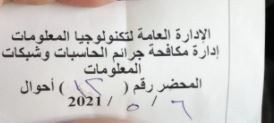 الإدارة العامة لتكنولوجيا المعلومات
إدارة مكافحة جرائم الحاسبات وشبكات
المعلومات
المحضر رقم ( ١٢ ) أحوال
٦ / ٥ / 2021